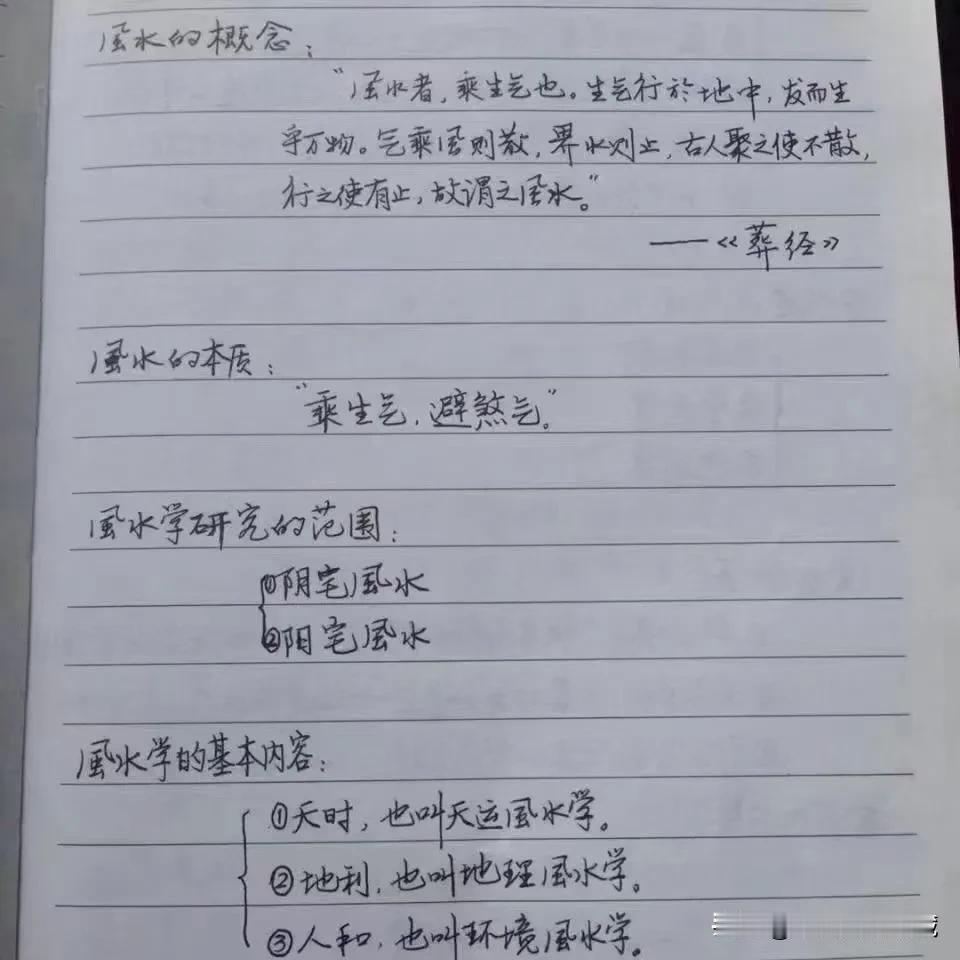 風水的概念：
"風水者，乘生气也。生气行於地中，发而生
乎万物。气乘風则散，界水则止，古人聚之使不散，
行之使有止，故谓之風水。"
——《葬经》
風水的本质：
"乘生气，避煞气。"
風水学研究的范围：
①阴宅風水
②阳宅風水
風水学的基本内容：
①天时，也叫天运風水学。
②地利，也叫地理風水学。
③人和，也叫环境風水学。